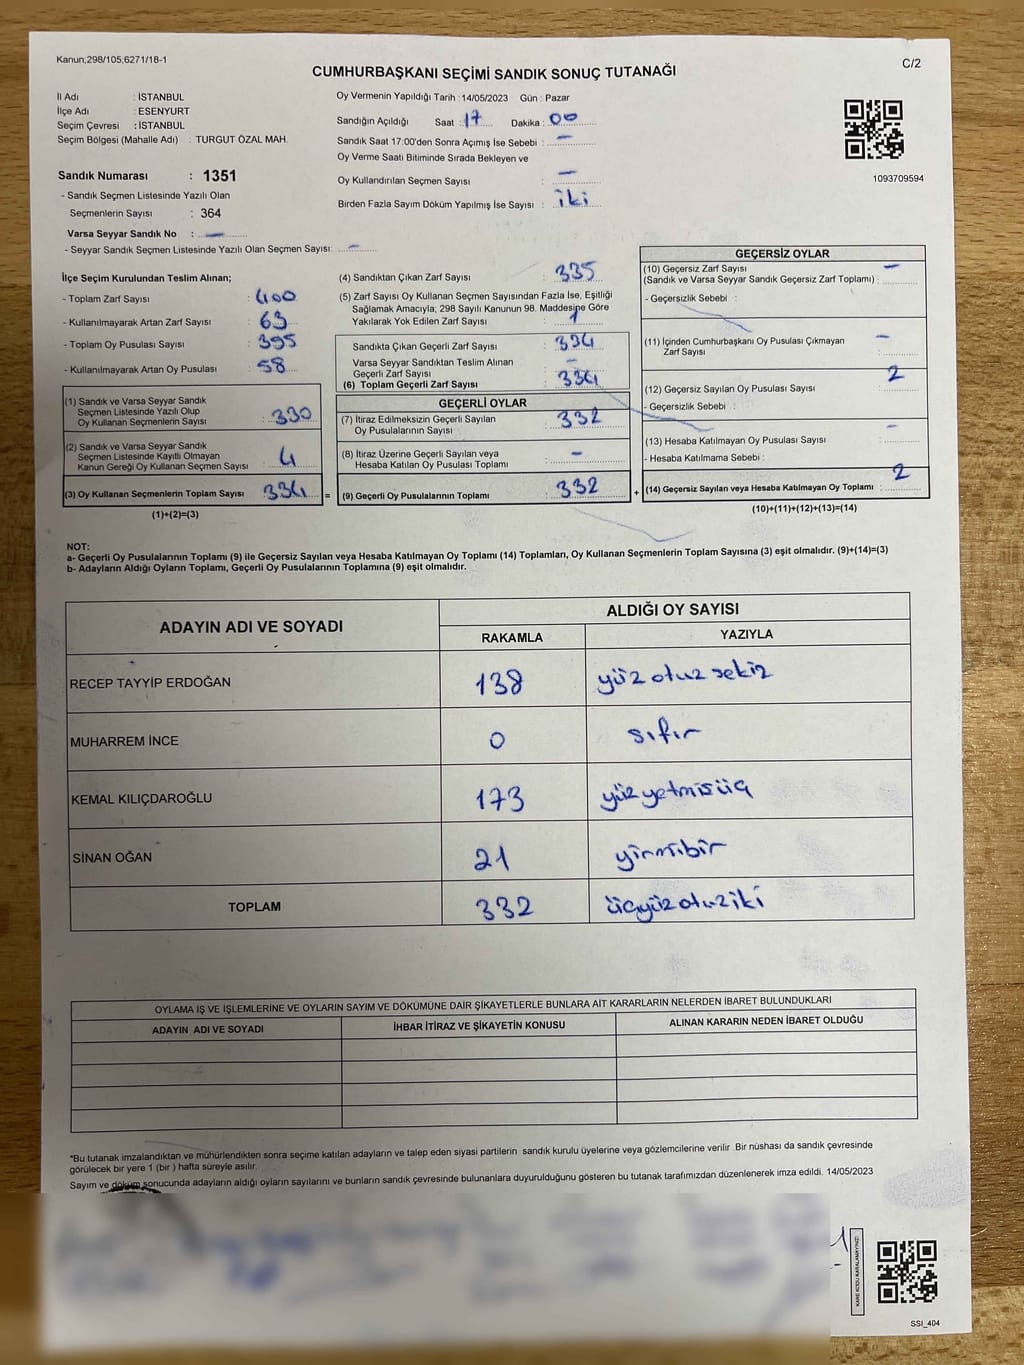 Kanun;298/105;6271/18-1
C/2
CUMHURBAŞKANI SEÇİMİ SANDIK SONUÇ TUTANAĞI
İl Adı : İSTANBUL
İlçe Adı : ESENYURT
Seçim Çevresi : İSTANBUL
Seçim Bölgesi (Mahalle Adı) : TURGUT ÖZAL MAH.
Sandık Numarası : 1351
- Sandık Seçmen Listesinde Yazılı Olan
Seçmenlerin Sayısı : 364
Varsa Seyyar Sandık No : —
- Seyyar Sandık Seçmen Listesinde Yazılı Olan Seçmen Sayısı: —
Oy Vermenin Yapıldığı Tarih : 14/05/2023 Gün : Pazar
Sandığın Açıldığı Saat : 17 Dakika : 00
Sandık Saat 17:00'den Sonra Açımış İse Sebebi : —
Oy Verme Saati Bitiminde Sırada Bekleyen ve
Oy Kullandırılan Seçmen Sayısı : —
Birden Fazla Sayım Döküm Yapılmış İse Sayısı : iki
1093709594
İlçe Seçim Kurulundan Teslim Alınan;
- Toplam Zarf Sayısı : 400
- Kullanılmayarak Artan Zarf Sayısı : 63
- Toplam Oy Pusulası Sayısı : 395
- Kullanılmayarak Artan Oy Pusulası : 58
(1) Sandık ve Varsa Seyyar Sandık
Seçmen Listesinde Yazılı Olup
Oy Kullanan Seçmenlerin Sayısı : 330
(2) Sandık ve Varsa Seyyar Sandık
Seçmen Listesinde Kayıtlı Olmayan
Kanun Gereği Oy Kullanan Seçmen Sayısı : 4
(3) Oy Kullanan Seçmenlerin Toplam Sayısı 334 =
(1)+(2)=(3)
(4) Sandıktan Çıkan Zarf Sayısı : 335
(5) Zarf Sayısı Oy Kullanan Seçmen Sayısından Fazla İse, Eşitliği
Sağlamak Amacıyla, 298 Sayılı Kanunun 98. Maddesine Göre
Yakılarak Yok Edilen Zarf Sayısı : 1
Sandıkta Çıkan Geçerli Zarf Sayısı : 334
Varsa Seyyar Sandıktan Teslim Alınan
Geçerli Zarf Sayısı : —
(6) Toplam Geçerli Zarf Sayısı : 334
GEÇERLİ OYLAR
(7) İtiraz Edilmeksizin Geçerli Sayılan
Oy Pusulalarının Sayısı : 332
(8) İtiraz Üzerine Geçerli Sayılan veya
Hesaba Katılan Oy Pusulası Toplamı : —
(9) Geçerli Oy Pusulalarının Toplamı : 332 +
GEÇERSİZ OYLAR
(10) Geçersiz Zarf Sayısı —
(Sandık ve Varsa Seyyar Sandık Geçersiz Zarf Toplamı) :
- Geçersizlik Sebebi :
(11) İçinden Cumhurbaşkanı Oy Pusulası Çıkmayan —
Zarf Sayısı :
(12) Geçersiz Sayılan Oy Pusulası Sayısı : 2
- Geçersizlik Sebebi :
(13) Hesaba Katılmayan Oy Pusulası Sayısı : —
- Hesaba Katılmama Sebebi :
(14) Geçersiz Sayılan veya Hesaba Katılmayan Oy Toplamı : 2
(10)+(11)+(12)+(13)=(14)
NOT:
a- Geçerli Oy Pusulalarının Toplamı (9) ile Geçersiz Sayılan veya Hesaba Katılmayan Oy Toplamı (14) Toplamları, Oy Kullanan Seçmenlerin Toplam Sayısına (3) eşit olmalıdır. (9)+(14)=(3)
b- Adayların Aldığı Oyların Toplamı, Geçerli Oy Pusulalarının Toplamına (9) eşit olmalıdır.
ADAYIN ADI VE SOYADI
ALDIĞI OY SAYISI
RAKAMLA YAZIYLA
RECEP TAYYİP ERDOĞAN 138 yüz otuz sekiz
MUHARREM İNCE 0 sıfır
KEMAL KILIÇDAROĞLU 173 yüz yetmişüç
SİNAN OĞAN 21 yirmibir
TOPLAM 332 üçyüz otuz iki
OYLAMA İŞ VE İŞLEMLERİNE VE OYLARIN SAYIM VE DÖKÜMÜNE DAİR ŞİKAYETLERLE BUNLARA AİT KARARLARIN NELERDEN İBARET BULUNDUKLARI
ADAYIN ADI VE SOYADI İHBAR İTİRAZ VE ŞİKAYETİN KONUSU ALINAN KARARIN NEDEN İBARET OLDUĞU
*Bu tutanak imzalandıktan ve mühürlendikten sonra seçime katılan adayların ve talep eden siyasi partilerin sandık kurulu üyelerine veya gözlemcilerine verilir Bir nüshası da sandık çevresinde
görülecek bir yere 1 (bir ) hafta süreyle asılır.
Sayım ve döküm sonucunda adayların aldığı oyların sayılarını ve bunların sandık çevresinde bulunanlara duyurulduğunu gösteren bu tutanak tarafımızdan düzenlenerek imza edildi. 14/05/2023
KARE KODU KARALAMAYINIZ!
SSI_404